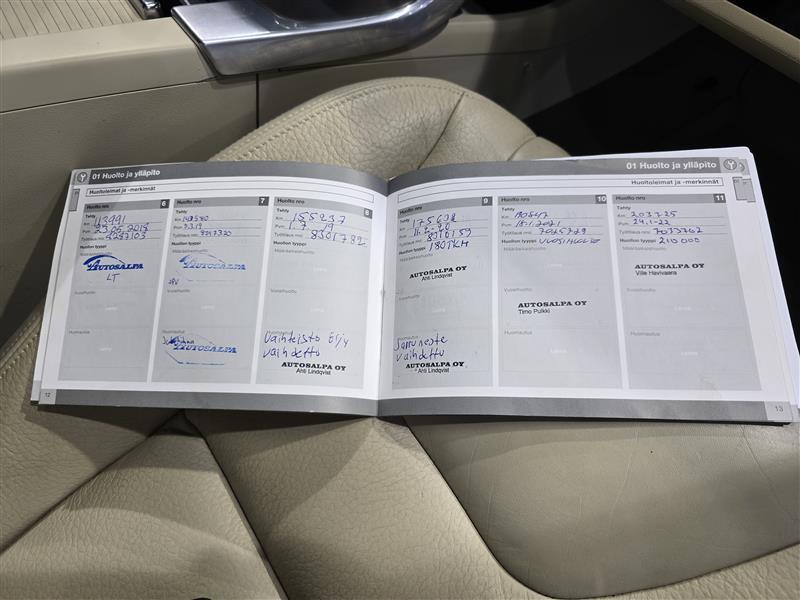 01 Huolto ja ylläpito
Huoltoleimat ja -merkinnät
Huolto nro 6
Tehty
Km
Pvm
Työtilaus nro
Huollon tyyppi
Määräaikaishuolto
AUTOSALPA
LT
Vuosihuolto
Huomautus
12
Huolto nro 7
Tehty
Km
Pvm
Työtilaus nro
Huollon tyyppi
Määräaikaishuolto
AUTOSALPA
Vuosihuolto
Huomautus
AUTOSALPA
Huolto nro 8
Tehty
Km 155237
Pvm 1.7 19
Työtilaus nro 8301782
Huollon tyyppi
Määräaikaishuolto
Vuosihuolto
Huomautus
Vaihteisto Öljy
vaihdettu
AUTOSALPA OY
Ahti Lindqvist
01 Huolto ja ylläpito
Huoltoleimat ja -merkinnät
Huolto nro 9
Tehty
Km
Pvm
Työtilaus nro
Huollon tyyppi 180TKM
Määräaikaishuolto
AUTOSALPA OY
Ahti Lindqvist
Vuosihuolto
Huomautus
Jarruneste
vaihdettu
AUTOSALPA OY
Ahti Lindqvist
Huolto nro 10
Tehty
Km
Pvm 18.1.2021
Työtilaus nro
Huollon tyyppi
Määräaikaishuolto
Vuosihuolto
AUTOSALPA OY
Timo Pulkki
Huomautus
Huolto nro 11
Tehty
Km 203725
Pvm 24.1-22
Työtilaus nro 7033262
Huollon tyyppi 210 000
Määräaikaishuolto
AUTOSALPA OY
Ville Havivaara
Vuosihuolto
Huomautus
13